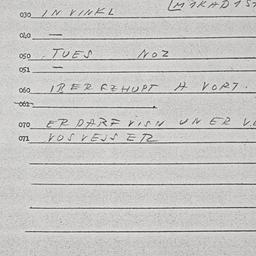 030 IN VINKL
040 —
050 TUES NOZ
051 —
060 IBERHUPT A VORT.
061
070 ER DARF VISN UN ER
071 VOS VESS ER